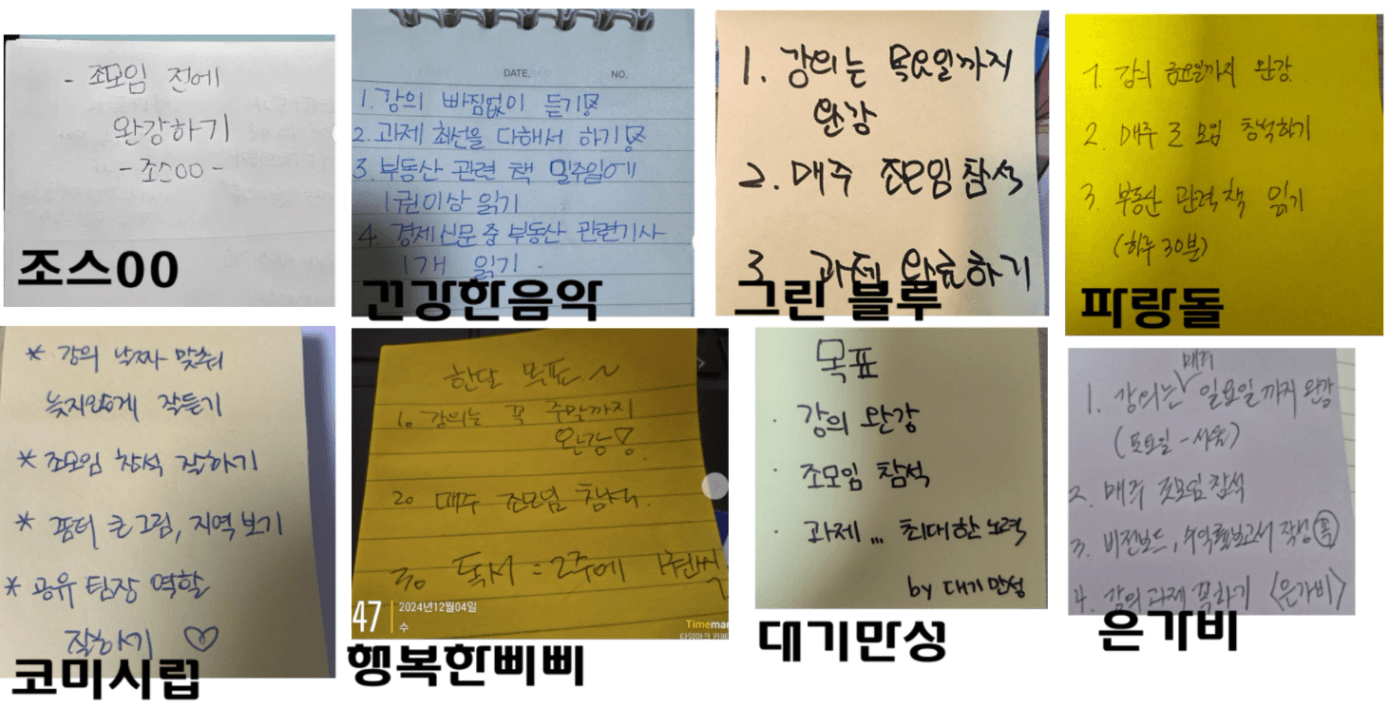 - 조모임 전에
완강하기
- 조스00 -
조스00
DATE. NO.
1. 강의 빠짐없이 듣기
2. 과제 최선을 다해서 하기
3. 부동산 관련 책 일주일에
1권이상 읽기
4. 경제신문 중 부동산 관련기사
1개 읽기
긴강한음악
1. 강의는 목요일까지
완강
2. 매주 조모임 참석
3. 과제 완료하기
그린 블루
1. 강의 금요일까지 완강
2. 매주 조모임 참석하기
3. 부동산 관련책 읽기
(하루 30분)
파랑돌
* 강의 날짜 맞춰
늦지않게 잘듣기
* 조모임 참석 잘하기
* 큰그림, 지역보기
* 공유 팀장 역할
잘하기 ♡
코미시립
한달 목표~
1. 강의는 꼭 주말까지
완강!
2. 매주 조모임 참석.
3. 독서 = 2주에 1권씩
47
2024년12월04일
수
행복한삐삐
목표
· 강의 완강
· 조모임 참석
· 과제... 최대한 노력
by 대기만성
대기만성
1. 강의는 매주 일요일까지 완강
2. 매주 조모임 참석
3. 비전보드, 수익률보고서 작성 (꼭)
4. 강의 과제 꼭하기 <은가비>
은가비